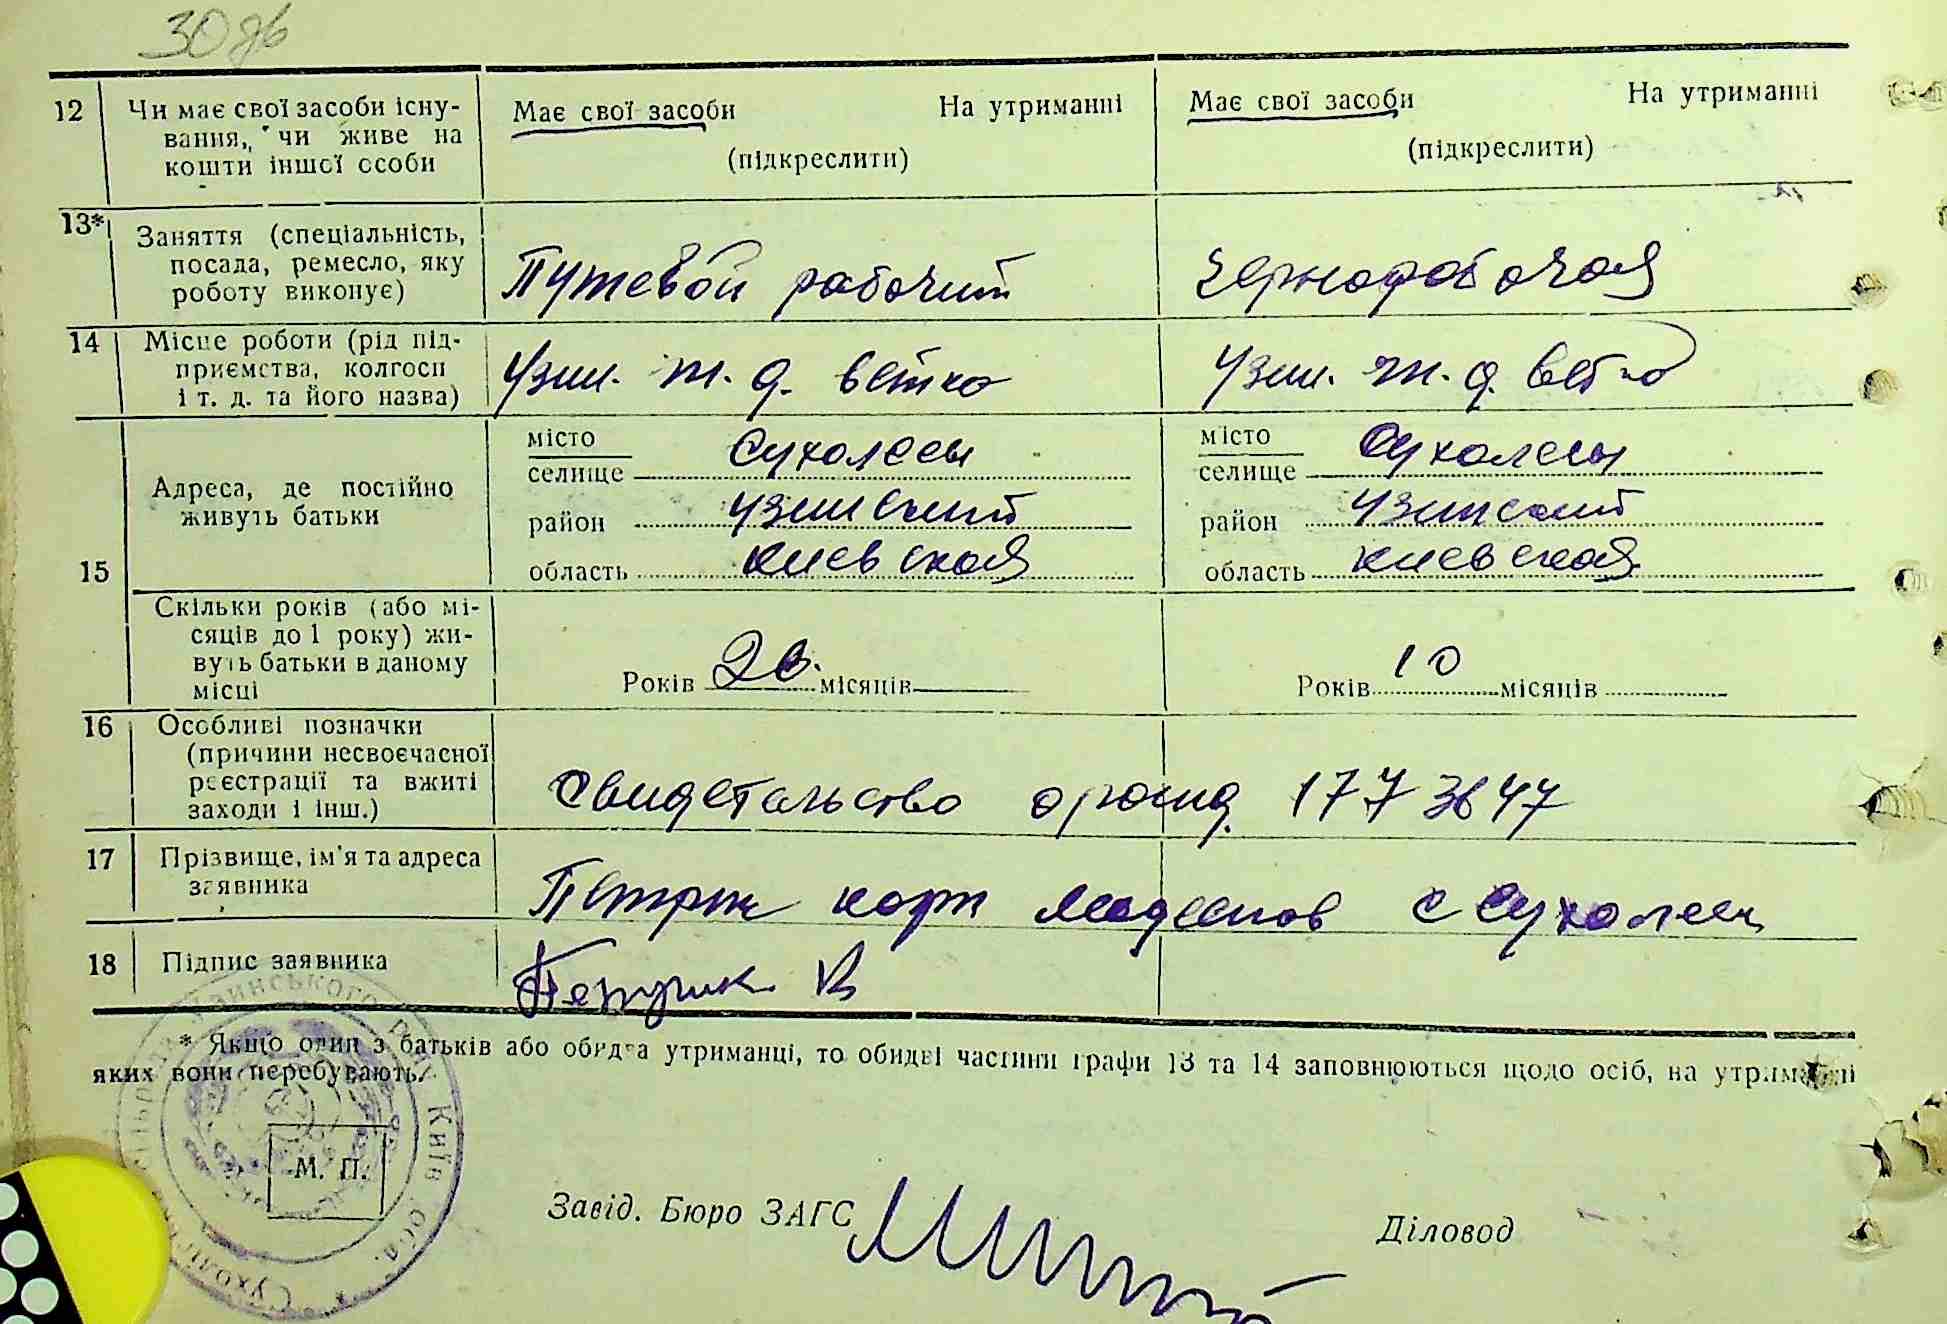 30
12 Чи має свої засоби існу- Має свої засоби На утриманні Має свої засоби На утриманні
вання, чи живе на (підкреслити) (підкреслити)
кошти іншої особи
13* Заняття (спеціальність,
посада, ремесло, яку Путевой рабочий Чернорабочая
роботу виконує)
14 Місце роботи (рід під-
приємства, колгосп Узин. ж. д. ветка Узин. ж. д. ветка
і т. д. та його назва)
місто Сухолесы місто Сухолесы
селище селище
15 Адреса, де постійно район Узинский район Узинский
живуть батьки
область Киевская область Киевская
Скільки років (або мі-
сяців до 1 року) жи-
вуть батьки в даному Років 20. місяців Років 10 місяців
місці
16 Особливі позначки
(причини несвоєчасної
реєстрації та вжиті Свидетельство о рожд. 1773647
заходи і інш.)
17 Прізвище, ім'я та адреса
заявника Петрик с Сухолесы
18 Підпис заявника Петрик В
* Якщо один з батьків або обидва утриманці, то обидві частини графи 13 та 14 заповнюються щодо осіб, на утриманні
яких вони перебувають.
М. П.
Київ обл.
Завід. Бюро ЗАГС Діловод